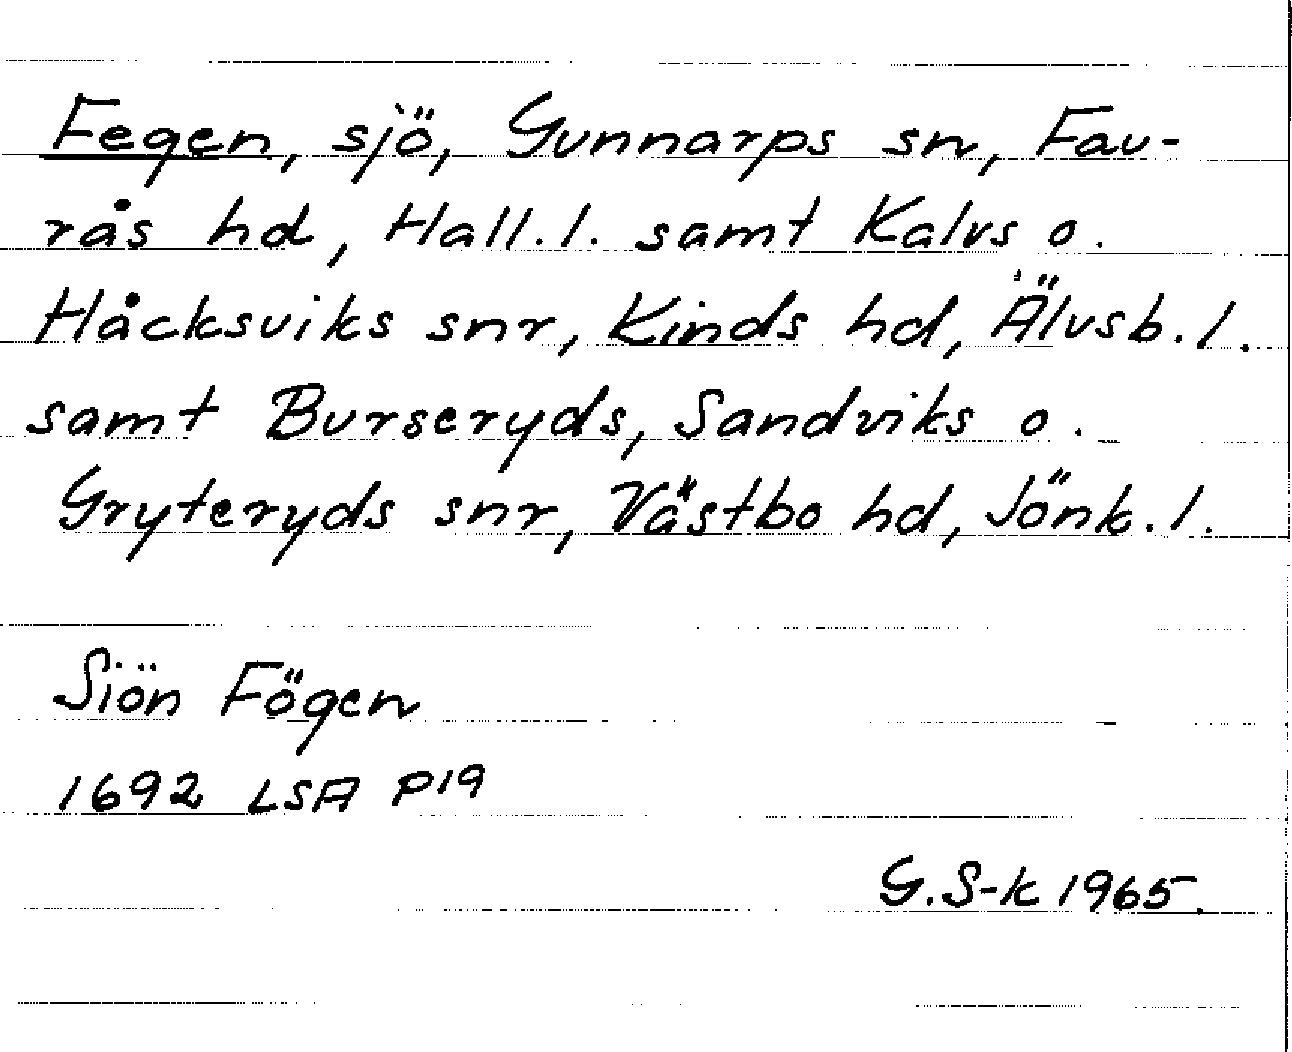 Fegen, sjö, Gunnarps sn, Fau-
rås hd, Hall.l. samt Kalvs o.
Håcksviks snr, Kinds hd, Älvsb.l.
samt Burseryds, Sandviks o.
Gryteryds snr, Västbo hd, Jönk.l.
Siön Fögen
1692 LSA P19
G.S-k 1965.